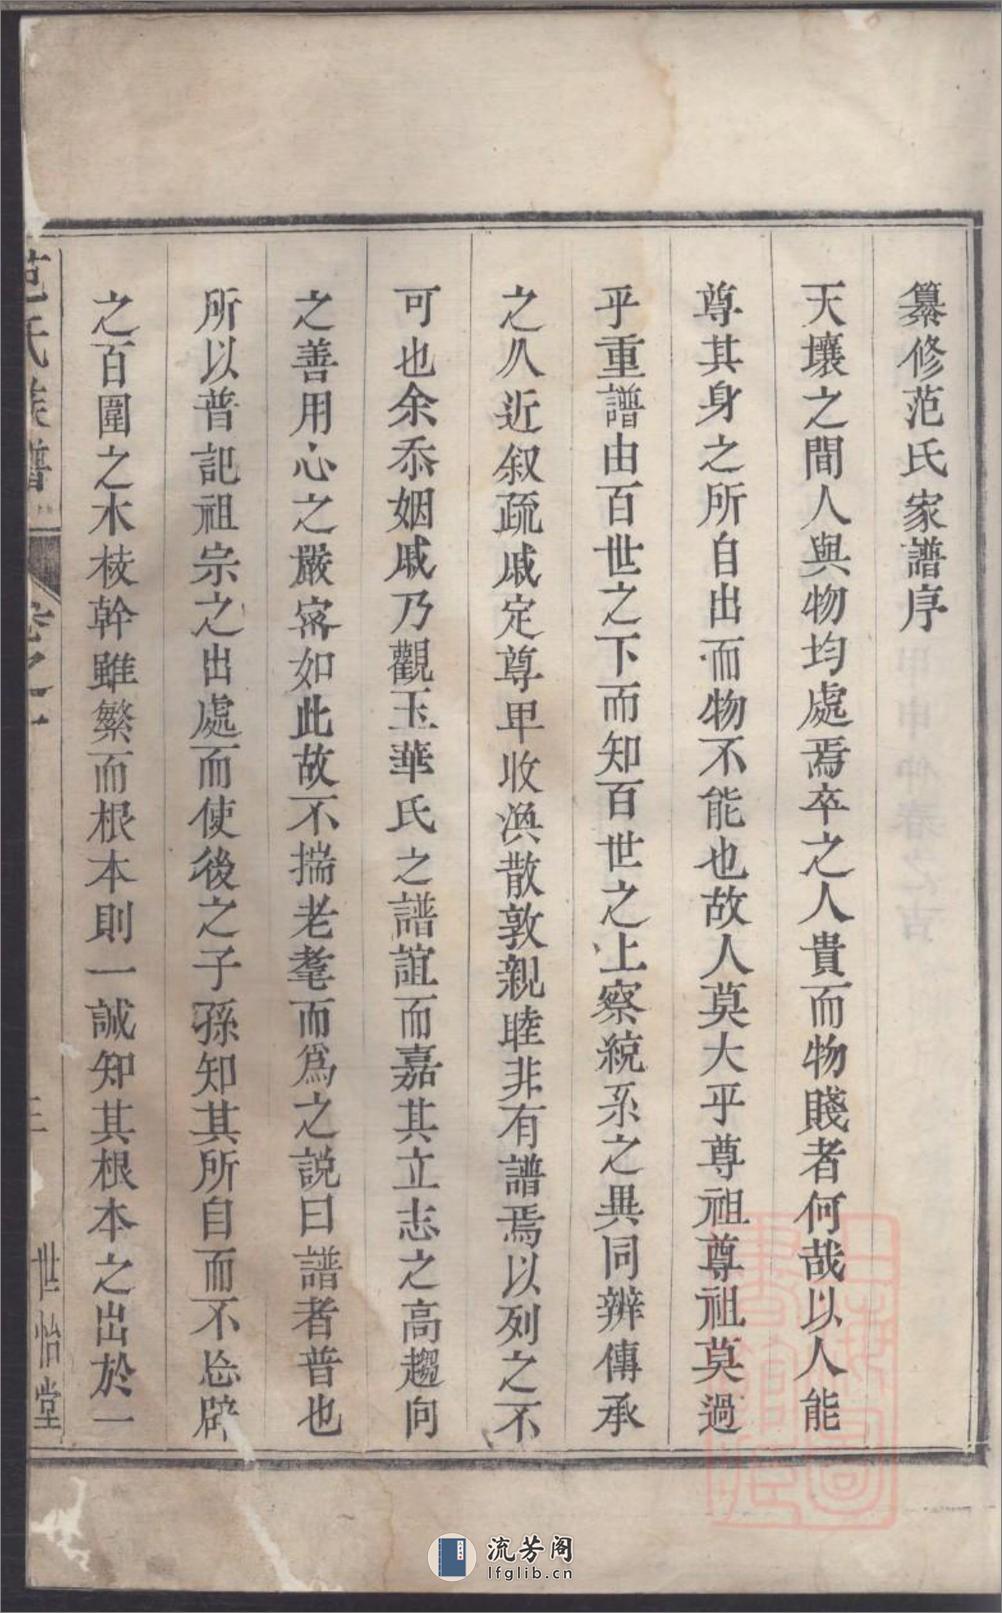 纂修范氏家譜序
天壤之間人與物均處焉卒之人貴而物賤者何哉以人能
尊其身之所自出而物不能也故人莫大乎尊祖尊祖莫過
乎重譜由百世之下而知百世之上察統系之異同辨傳承
之久近叙疏戚定尊卑收渙散敦親睦非有譜焉以列之不
可也余忝姻戚乃觀玉華氏之譜誼而嘉其立志之高趨向
之善用心之嚴宻如此故不揣老耄而爲之説曰譜者普也
所以普記祖宗之出處而使後之子孫知其所自而不忘辟
之百圍之木枝幹雖繁而根本則一誠知其根本之出於一
范氏族譜 卷之一 世怡堂
流芳阁
lfglib.cn